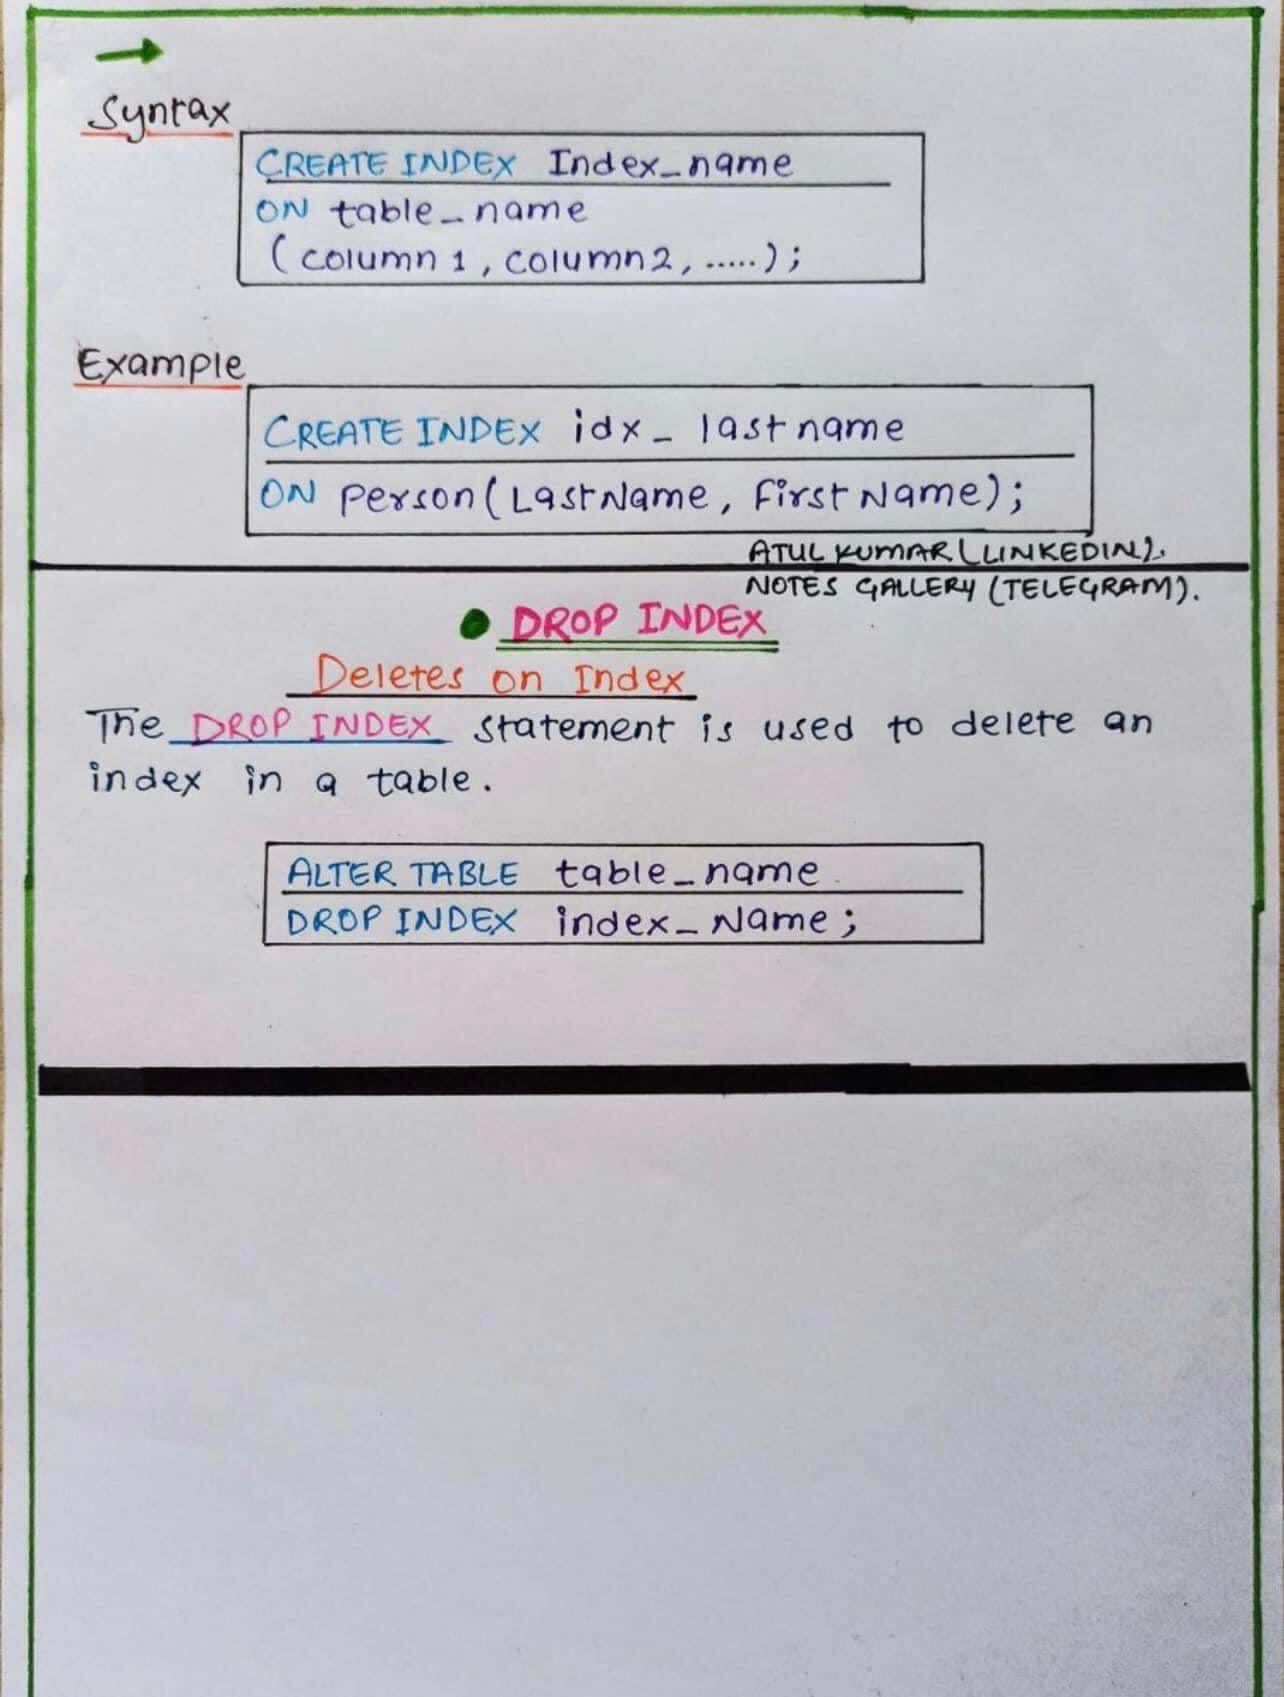 Syntax
CREATE INDEX Index_name
ON table_name
(column1, column2, .....);
Example
CREATE INDEX idx_lastname
ON Person(LastName, FirstName);
ATUL KUMAR (LINKEDIN).
NOTES GALLERY (TELEGRAM).
DROP INDEX
Deletes on Index
The DROP INDEX statement is used to delete an
index in a table.
ALTER TABLE table_name
DROP INDEX index_Name;